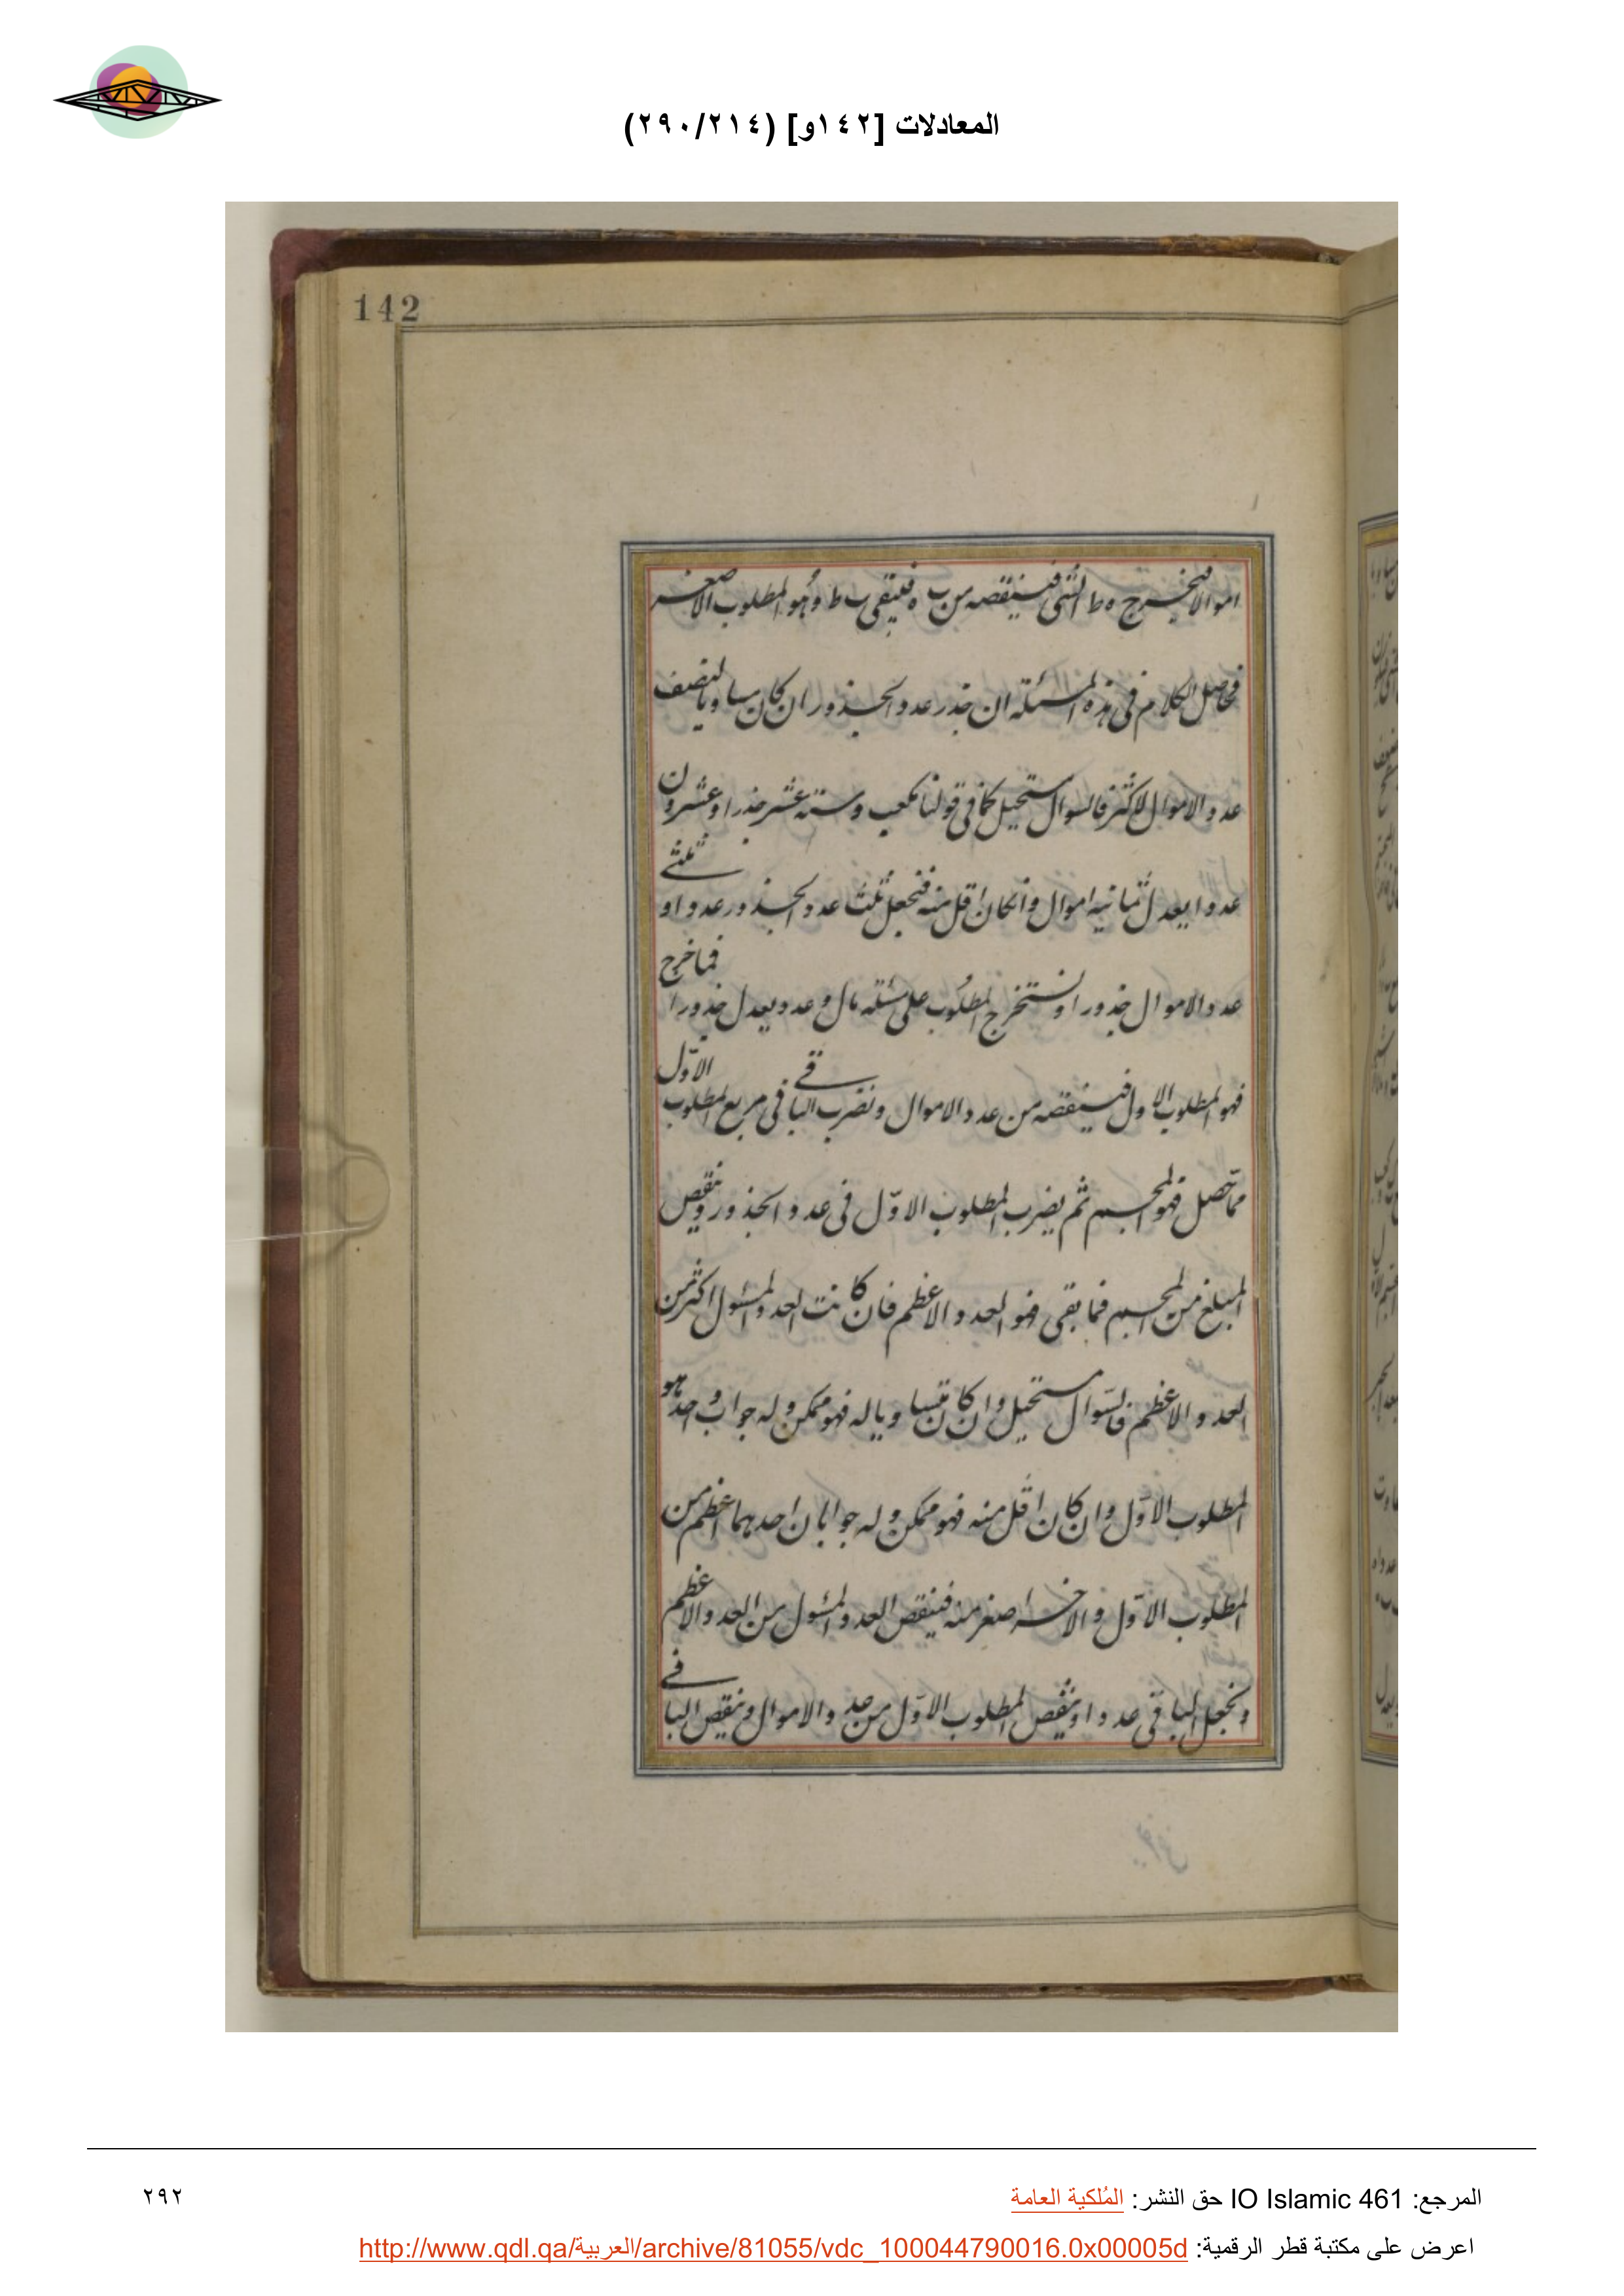 المعادلات [١٤٢و] (٢٩٠/٢١٤)
142
اموالا فيخرج ه ط الشئ فينقصه من ب ه فيبقى ب ط وهو المطلوب الاصغر
فحاصل الكلام فى هذه المسئلة ان جذر عدد الجذور ان كان مساويا لنصف
عدد الاموال او اكثر فالسوال مستحيل كما فى قولنا مكعب وستة عشر جذرا وعشرون
عددا يعدل ثمانية اموال وان كان اقل منه فنجعل ثلث عدد الجذور عددا وثلثى
عدد الاموال جذورا ونستخرج المطلوب على مسئلة مال وعدد يعدل جذورا فما خرج
فهو المطلوب الاول فينقصه من عدد الاموال ونضرب الباقى فى مربع المطلوب الاول
فما حصل فهو المجسم ثم يضرب المطلوب الاول فى عدد الجذور وينقص
المبلغ من المجسم فما بقى فهو العدد الاعظم فان كانت العدد المسئول اكثر من
العدد الاعظم فالسوال مستحيل وان كان متساويا له فهو ممكن وله جواب واحد هو
المطلوب الاول وان كان اقل منه فهو ممكن وله جوابان احدهما اعظم من
المطلوب الاول والاخر اصغر منه فينقص العدد المسئول من العدد الاعظم
ونجعل الباقى عددا وينقص المطلوب الاول من عدد الاموال وينقص الباقى
المرجع: IO Islamic 461 حق النشر: المُلكية العامة
٢٩٢
اعرض على مكتبة قطر الرقمية: http://www.qdl.qa/العربية/archive/81055/vdc_100044790016.0x00005d